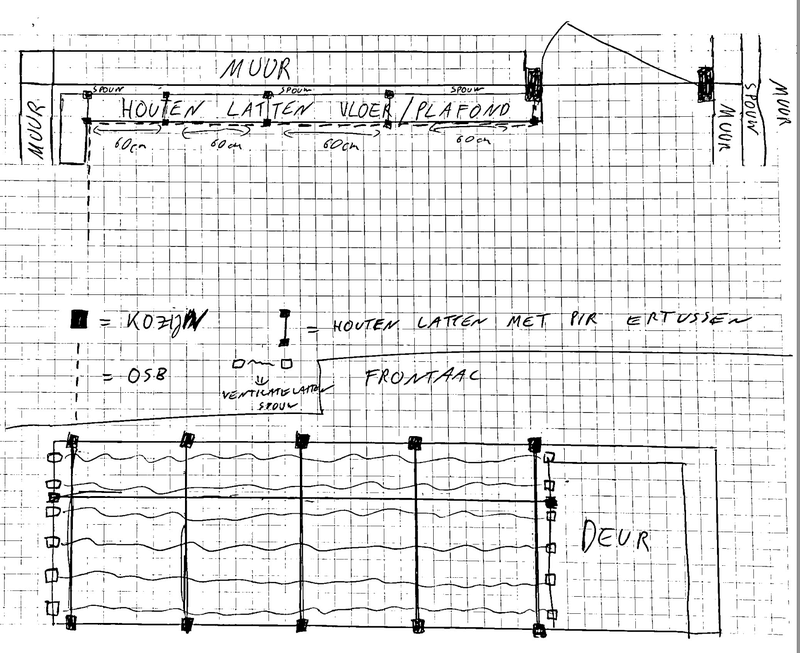 MUUR
MUUR
SPOUW
SPOUW
SPOUW
HOUTEN LATTEN VLOER/PLAFOND
60cm
60cm
60cm
60cm
MUUR
SPOUW
MUUR
= KOZIJN
= HOUTEN LATTEN MET PIR ERTUSSEN
= OSB
VENTILATIELATTEN
SPOUW
FRONTAAL
DEUR